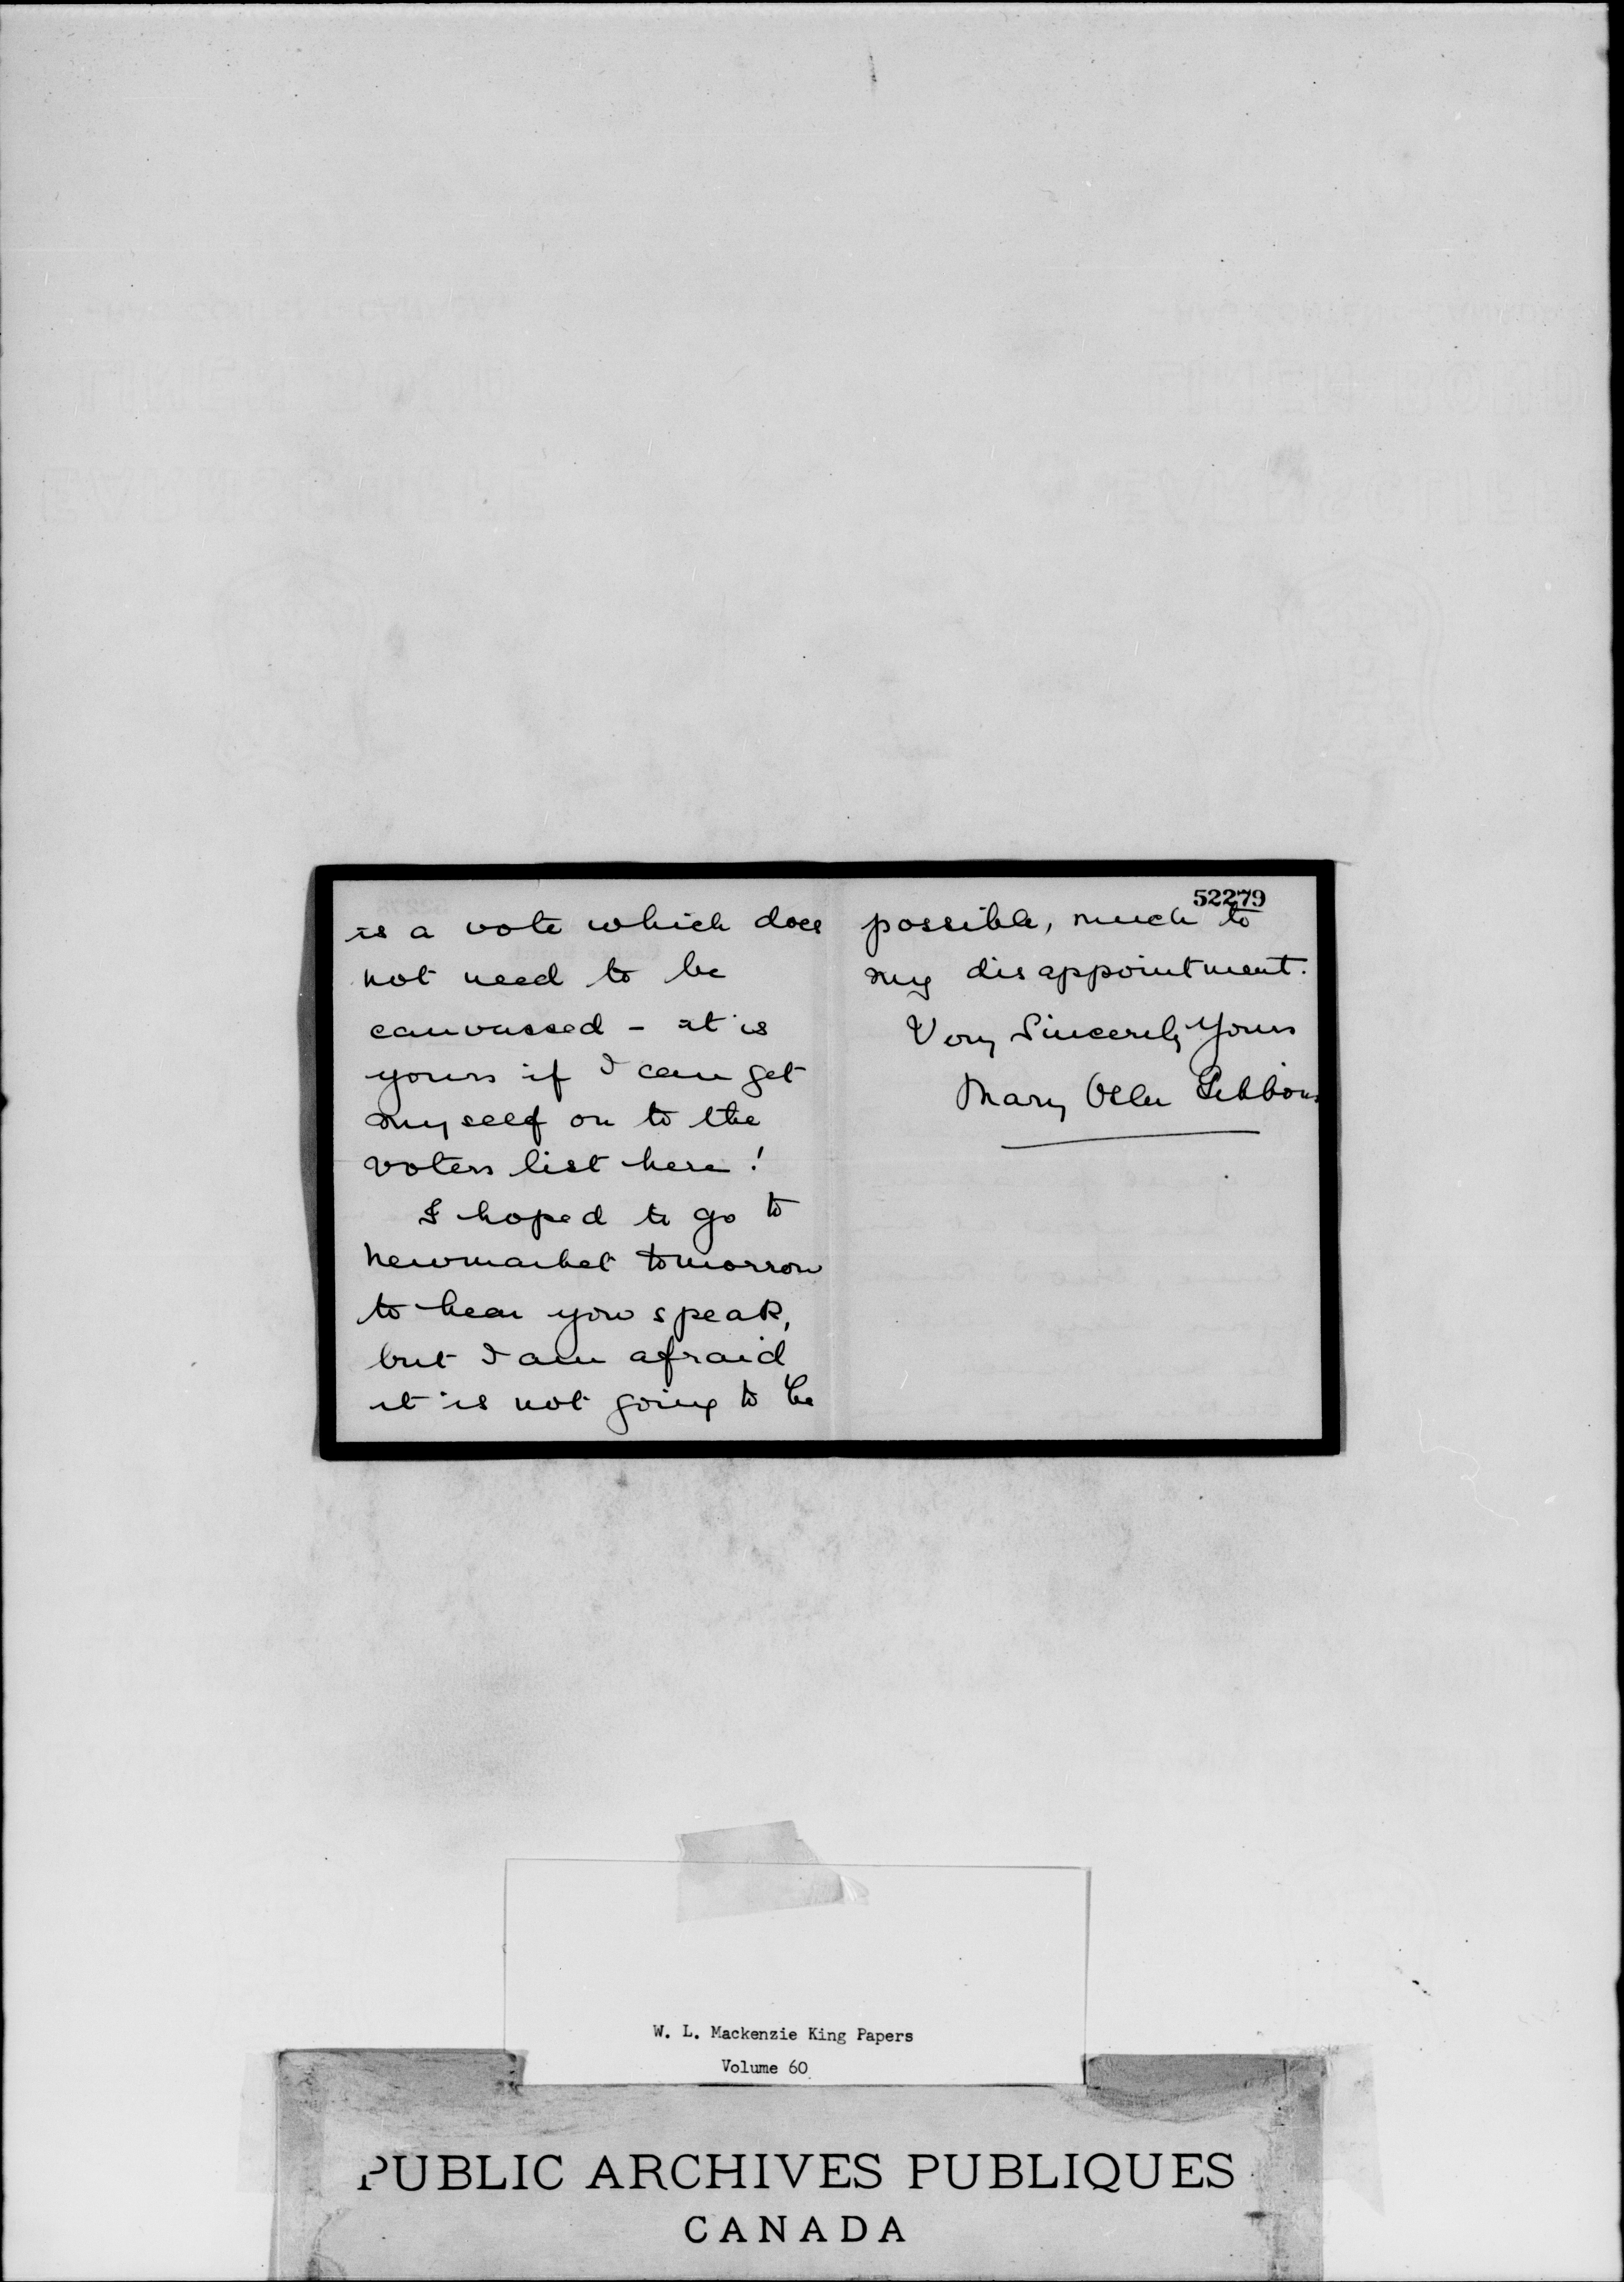 is a vote which does
not need to be
canvassed - it is
yours if I can get
myself on to the
voters list here!
I hoped to go to
Newmarket tomorrow
to hear you speak,
but I am afraid
it is not going to be
52279
possible, much to
my disappointment.
Very Sincerely Yours
Mary Gibbons
W. L. Mackenzie King Papers
Volume 60
PUBLIC ARCHIVES PUBLIQUES
CANADA